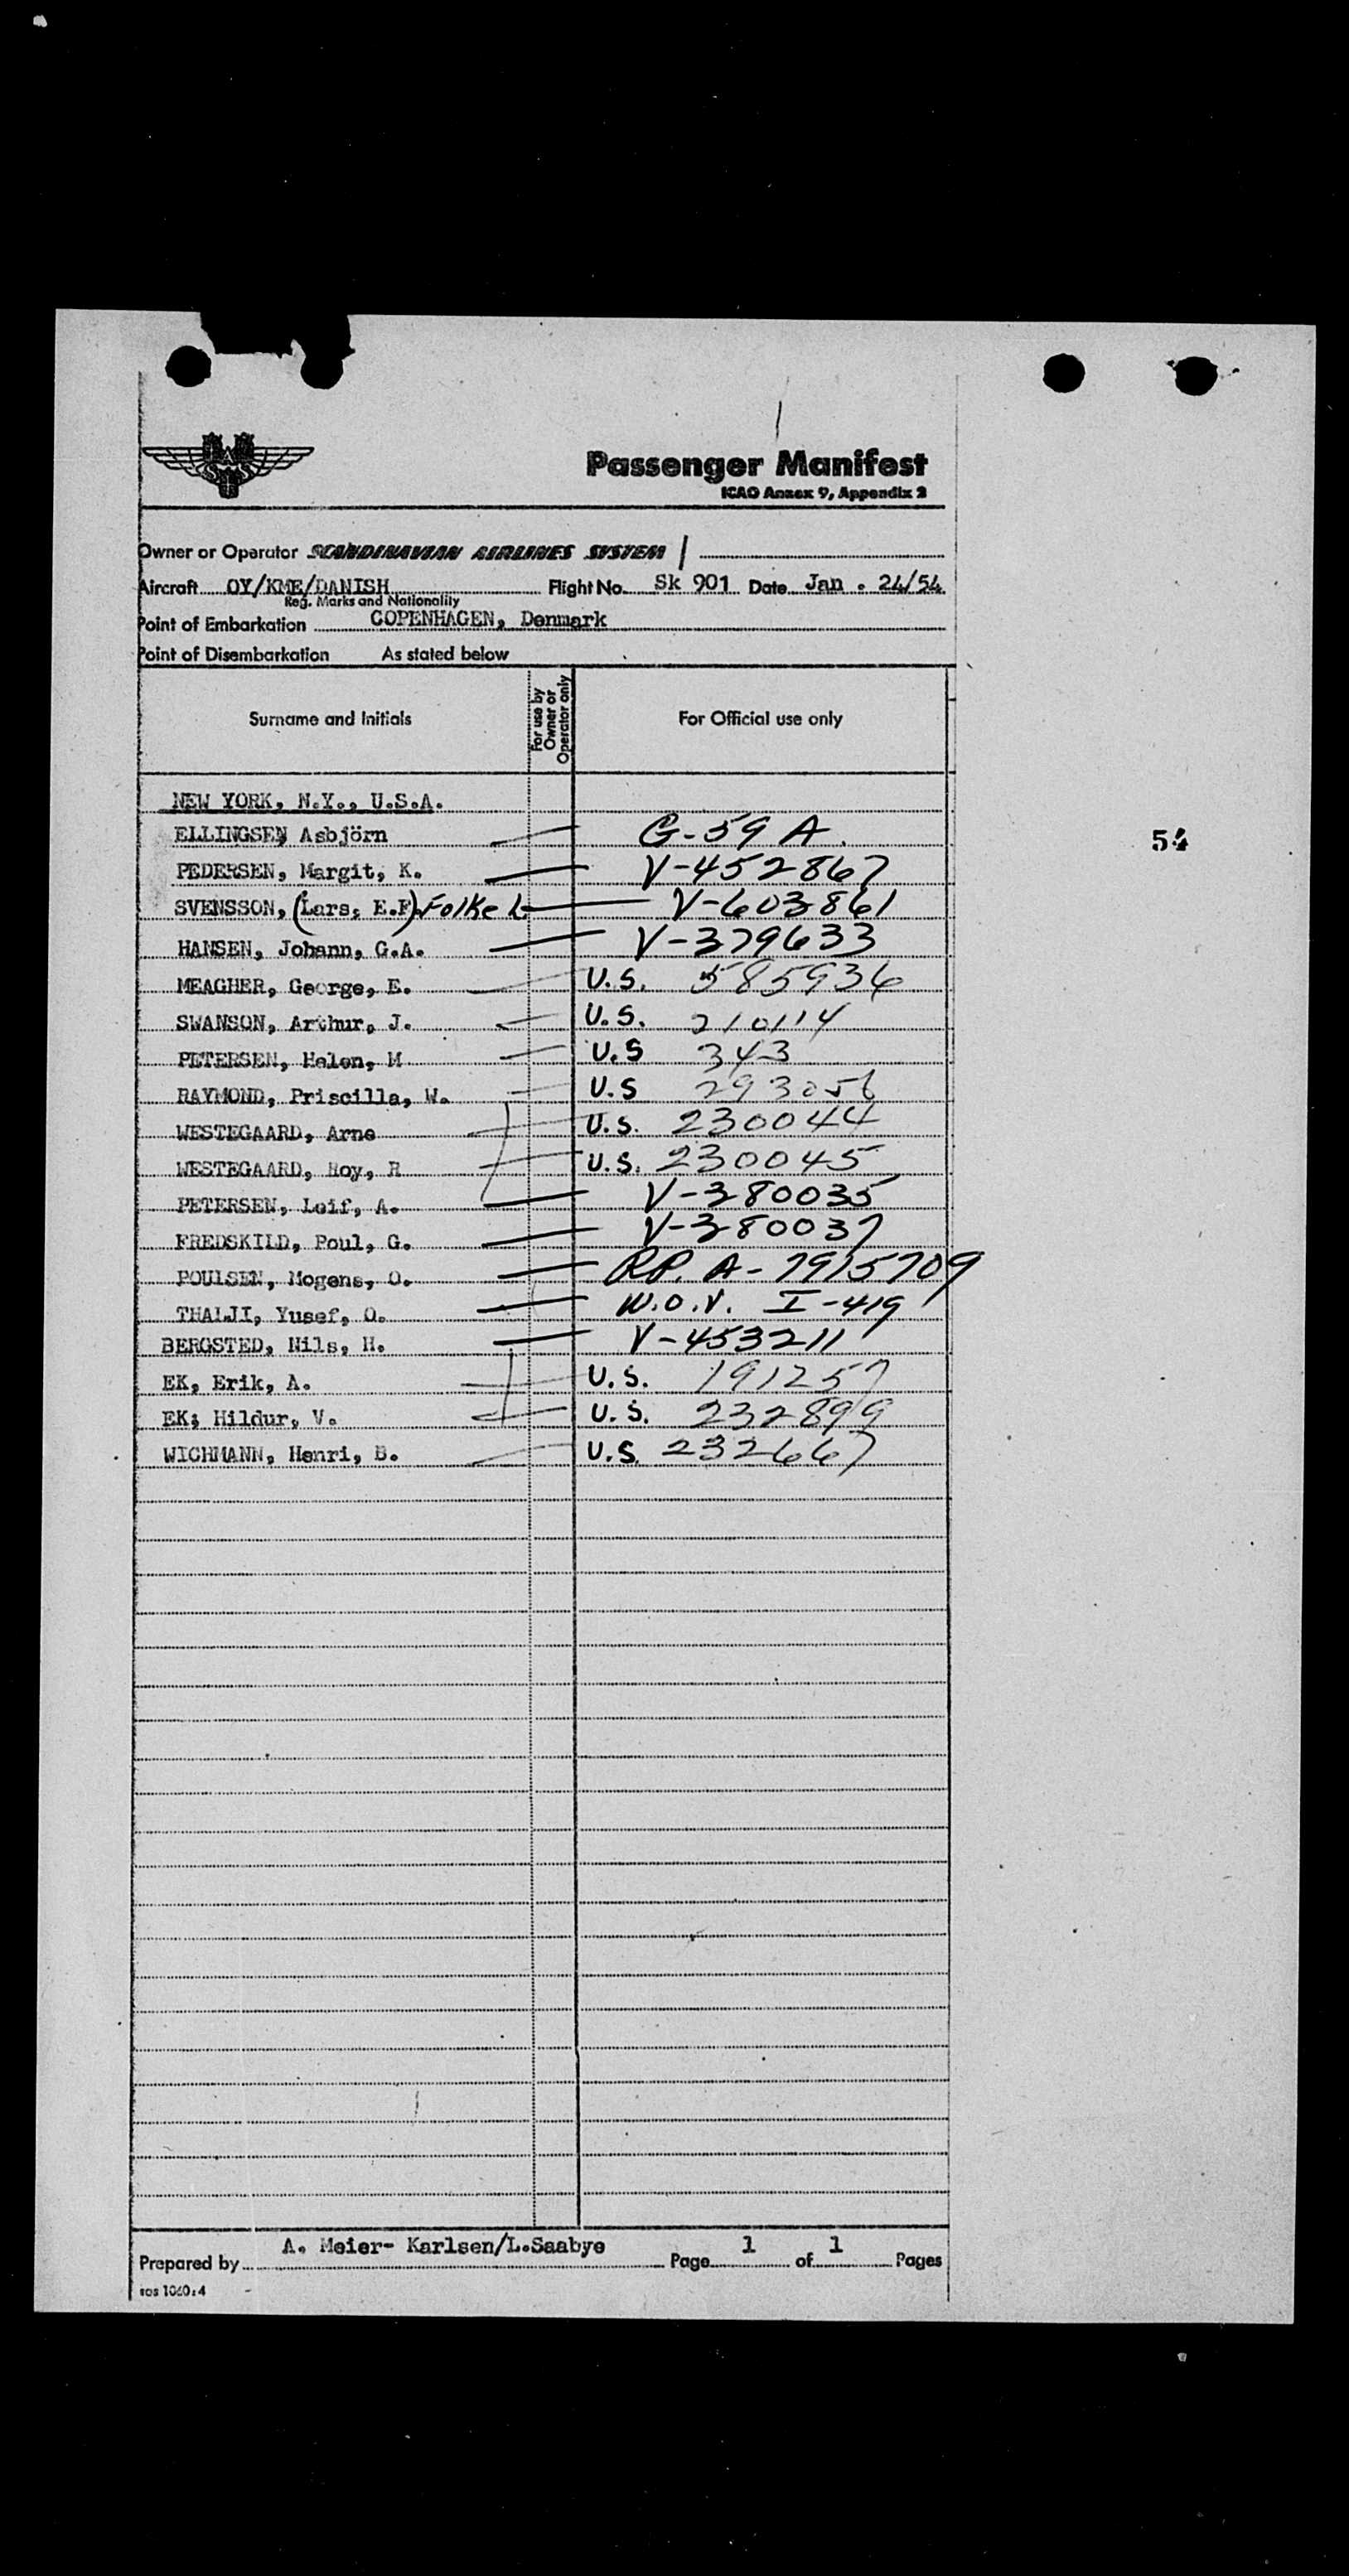 Passenger Manifest
ICAO Annex 9, Appendix 2
Owner or Operator SCANDINAVIAN AIRLINES SYSTEM
Aircraft OY/KME/DANISH Flight No. Sk 901 Date Jan . 24/54
Reg. Marks and Nationality
Point of Embarkation COPENHAGEN, Denmark
Point of Disembarkation As stated below
Surname and Initials For use by Owner or Operator only For Official use only
NEW YORK, N.Y., U.S.A.
ELLINGSEN, Asbjörn G-59 A.
54
PEDERSEN, Margit, K. V-452867
SVENSSON, (Lars, E.F.) Folke L. V-603861
HANSEN, Johann, G.A. V-379633
MEAGHER, George, E. U.S. 585936
SWANSON, Arthur, J. U.S. 210114
PETERSEN, Helen, M U.S 343
RAYMOND, Priscilla, W. U.S 293056
WESTEGAARD, Arne U.S. 230044
WESTEGAARD, Roy, R U.S. 230045
PETERSEN, Leif, A. V-380035
FREDSKILD, Poul, G. V-380037
POULSEN, Mogens, O. RP. A-7915709
THALJI, Yusef, O. W.O.V. I-419
BERGSTED, Nils, H. V-453211
EK, Erik, A. U.S. 191257
EK, Hildur, V. U.S. 232899
WICHMANN, Henri, B. U.S. 232667
Prepared by A. Meier- Karlsen/L.Saabye Page 1 of 1 Pages
sos 1060:4